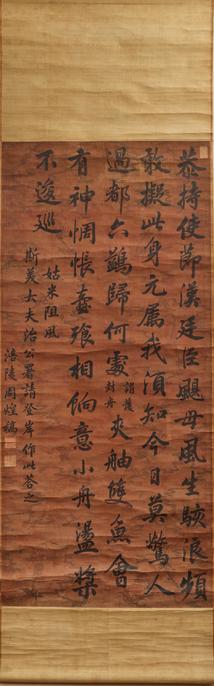 恭持使節漢廷臣颶母風生駭浪頻
敢擬此身元属我須知今日莫驚人
過都六鷁歸何處詔護封舟夾舳雙魚會
有神惆悵壺飱相餉意小舟盪槳
不逡巡
姑米阻風
斯羙太夫治公署請登岸作此答之
涪陵周煌稿